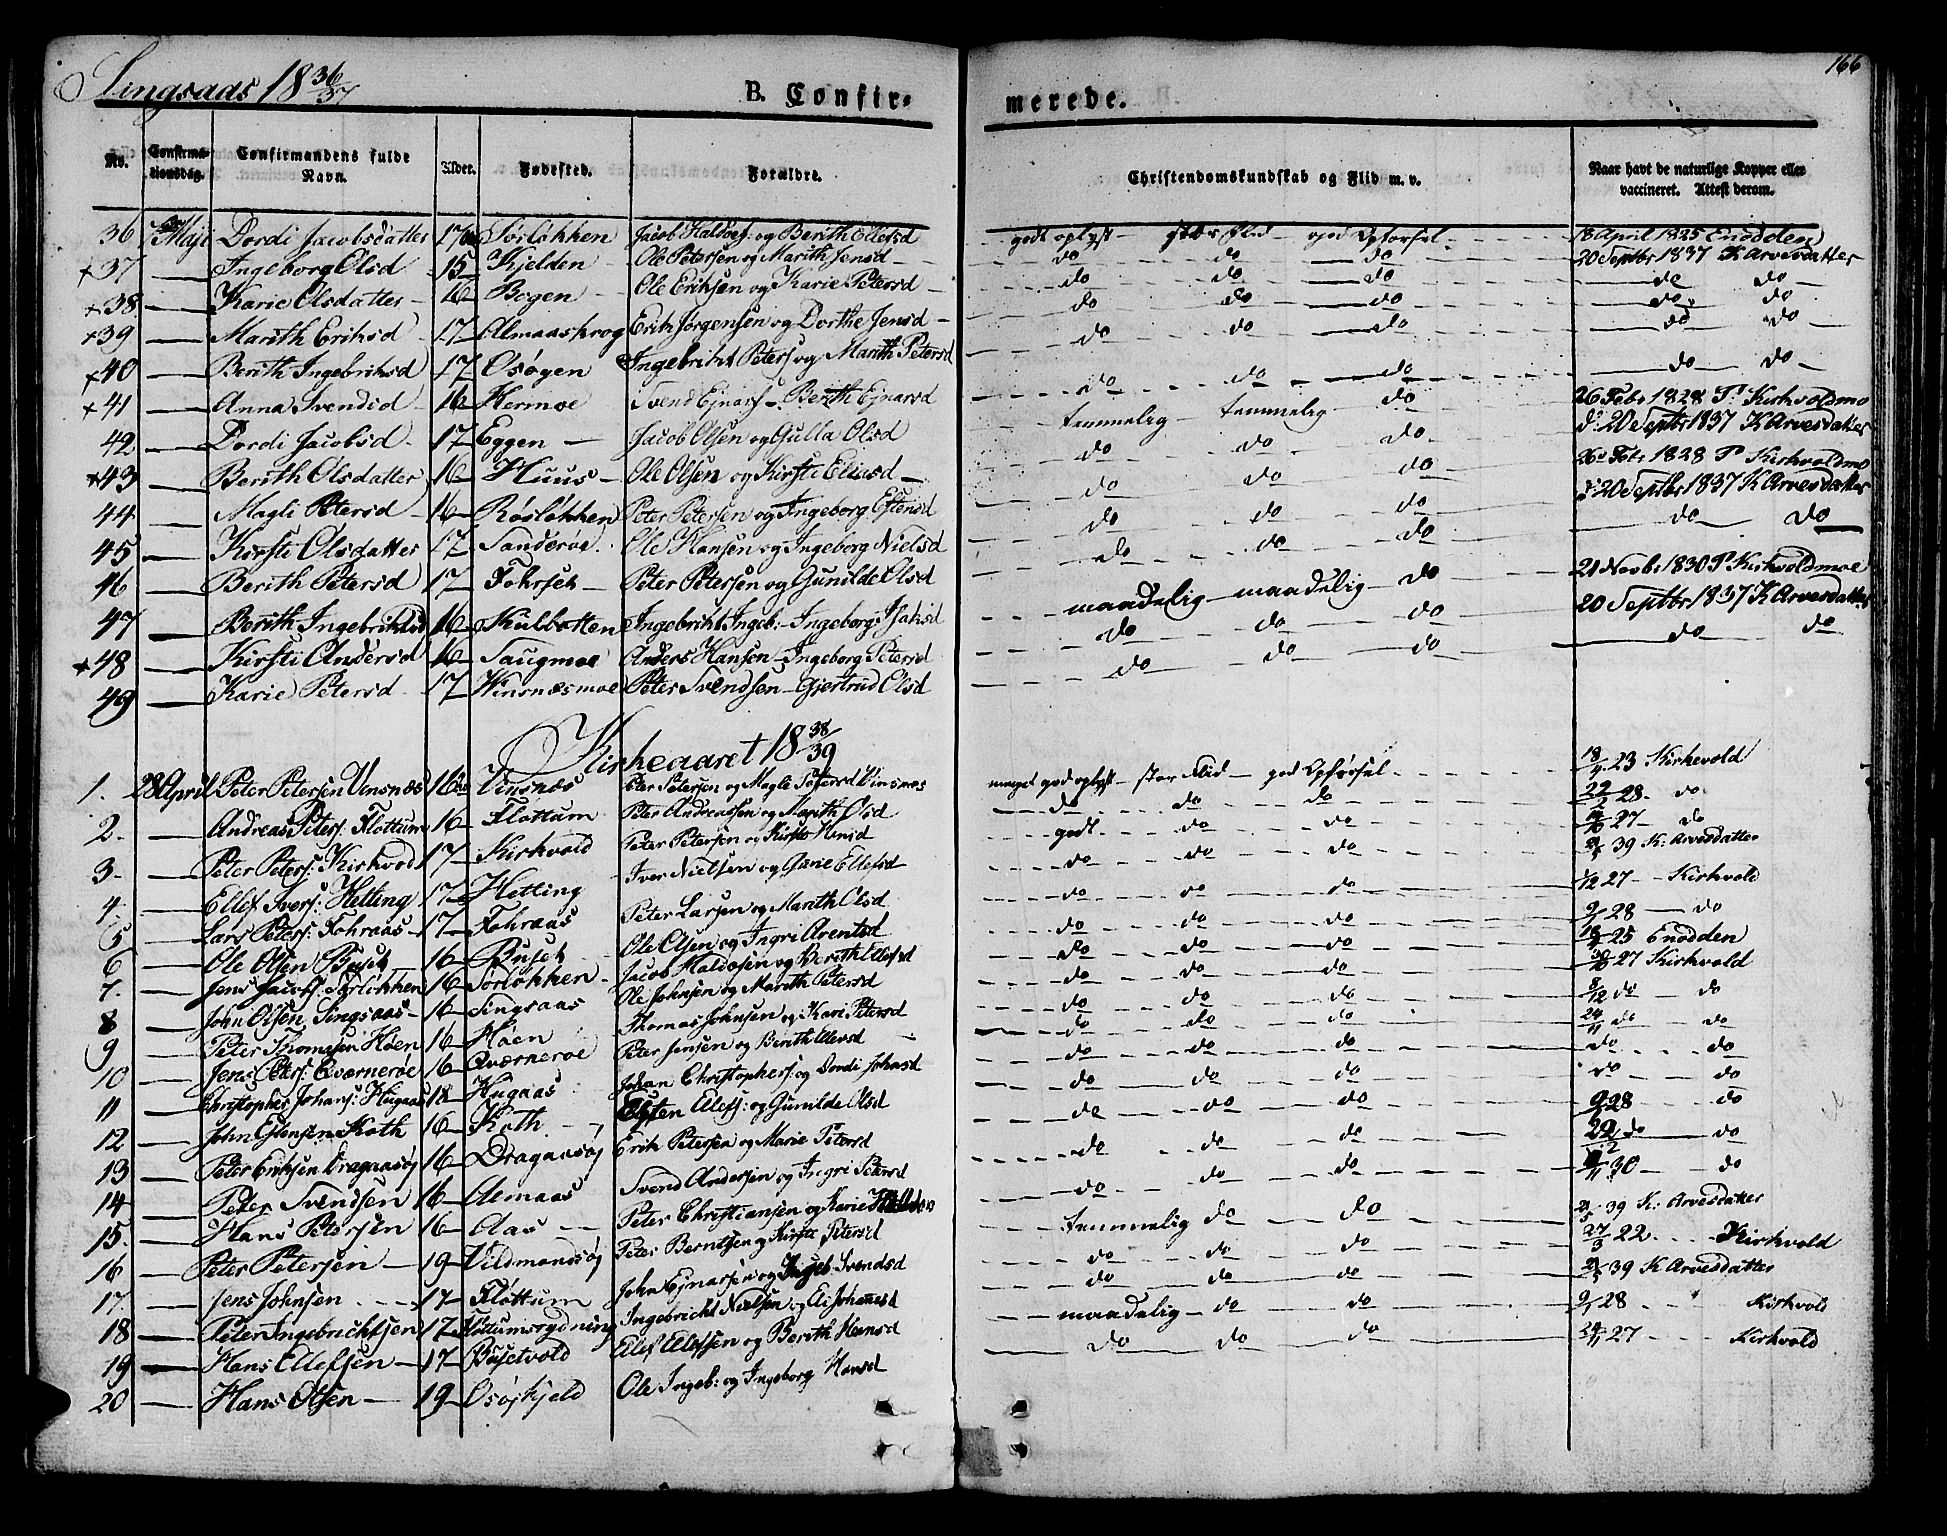 Singsaas 18 36/37
B. Confir-
merede.
166
No.
Confirmationsdag.
Confirmandens fulde Navn.
Alder.
Fødested.
Forældre.
Christendomskundskab og Flid m.v.
Naar havt de naturlige Kopper eller vaccineret. Attest derom.
36 Maji Dordi Jacobsdatter 17 Sørløkken Jacob Haldors: og Berith Ellefsd godt oplyst — stor Flid — god Opførsel 18 April 1825 Enodden
×37 — Ingeborg Olsd 15 Kjelden Ole Petersen og Marith Jensd do do do 20 Septbr 1837 K Arvesdatter
×38 — Karie Olsdatter 16 Bogen Ole Eriksen og Karie Petersd do do do do do
×39 — Marith Eriksd 17 Almaaskrog Erik Jørgensen og Dorthe Jensd do do do do do
×40 — Berith Ingebriktsd 17 Osøgen Ingebrikt Peters: og Marith Petersd do do do do do
×41 — Anna Svendsd 16 Kermoe Svend Ejnars — Berith Ejnarsd do do do do do
42 — Dordi Jacobsd 17 Eggen Jacob Olsen og Gulla Olsd temmelig temmelig do 26 Febr 1828 P. Kirkvoldmo
×43 — Berith Olsdatter 16 Huus Ole Olsen og Kirsti Eliasd do do do d: 20 Septbr 1837 K Arvesdatter
44 — Magli Petersd 16 Røsløkken Peter Petersen og Ingeborg Estensd do do do 26 Febr 1828 P Kirkvoldmo
45 — Kirsti Olsdatter 17 Sanderøe Ole Hansen og Ingeborg Nielsd do do do d: 20 Septbr 1837 K Arvesdatter
46 — Berith Petersd 17 Fohrset Peter Petersen og Gunilde Olsd do do do do do
47 — Berith Ingebriktsd 16 Kulbotten Ingebrikt Ingeb: — Ingeborg Isaksd maadelig — maadelig — do 21 Novbr 1830 P Kirkvoldmoe
×48 — Kirsti Andersd 16 Saugmoe Anders Hansen — Ingeborg Petersd do do do 20 Septbr 1837 K Arvesdatter
49 — Karie Petersd 17 Winsnesmoe Peter Svendsen — Gjertrud Olsd do do do do do
Kirkeaaret 18 38/39
1. 28 April Peter Petersen Vinsnæs 16 Vinsnæs Peter Petersen og Magle Petersd Vinsnæs meget god oplyst — stor Flid — god Opførsel 18/4 23 Kirkevold
2. — Andreas Peters: Fløttum 16 Fløttum Peter Andreassen og Marith Olsd do do do 22/2 28 do
3. — Peter Peters: Kirkvold 17 Kirkvold Peter Petersen og Kirsti Hansd godt do do 27 do
4. — Ellef Ivers: Hetting 17 Hetting Iver Nielsen og Gane Ellefsd do do do 39 K: Arvesdatter
5 — Lars Peters: Fohraas 17 Fohraas Peter Larsen og Marith Olsd do do do 1/12 27 Kirkvold
6 — Ole Olsen Buset 16 Buset Ole Olsen og Ingri Arentsd do do do 28 do
7. — Jens Jacobs: Sørløkken 16 Sørløkken Jacob Haldosen og Berith Ellefsd do do do 25 Enodden
8 — John Olsen Singsaas 16 Singsaas Ole Johnsen og Marith Petersd do do do 27 Kirkvold
9 — Peter Thomasen Høen 16 Høen Thomas Johnsen og Kari Petersd do do do 8/12 do do
10 — Jens Peters: Qværnerøe 16 Qværnerøe Peter Jensen og Berith Ellefsd do do do 24/11 do do
11 — Christopher Johans: Hugaas 18 Hugaas Johan Christophers: og Dordi Johnsd do do do do do
12 — John Estensen Koth 16 Koth Esten Ellefs: og Gunilde Olsd do do do do do
13 — Peter Eriksen Dragaasøj 16 Dragaasøj Erik Petersen og Marie Petersd do do do 28 do
14 — Peder Svendsen 16 Almaas Svend Andersen og Ingri Petersd do do do 22/2 do do
15. — Hans Petersen 16 Aas Peter Christiansen og Karie do do do 30 do
16 — Peter Petersen 19 Vildmandsøj Peter Berntsen og Kirsti Petersd temmelig do do 39 K: Arvesdatter
17. — Jens Johnsen 17 Fløttum John Ejnarsen og Ingeb: Svendsd do do do 27/3 22 Kirkvold
18 — Peter Ingebrichtsen 17 Fløttumsrydning Ingebricht Nielsen og Eli Johansd do do do 39 K Arvesdatter
19 — Hans Ellefsen 17 Busetvold Ellef Ellefsen og Berith Hansd maadelig do do 28 Kirkvold
20 — Hans Olsen 19 Osøjkjeld Ole Ingeb: og Ingeborg Hansd do do do 27 Kirkvold